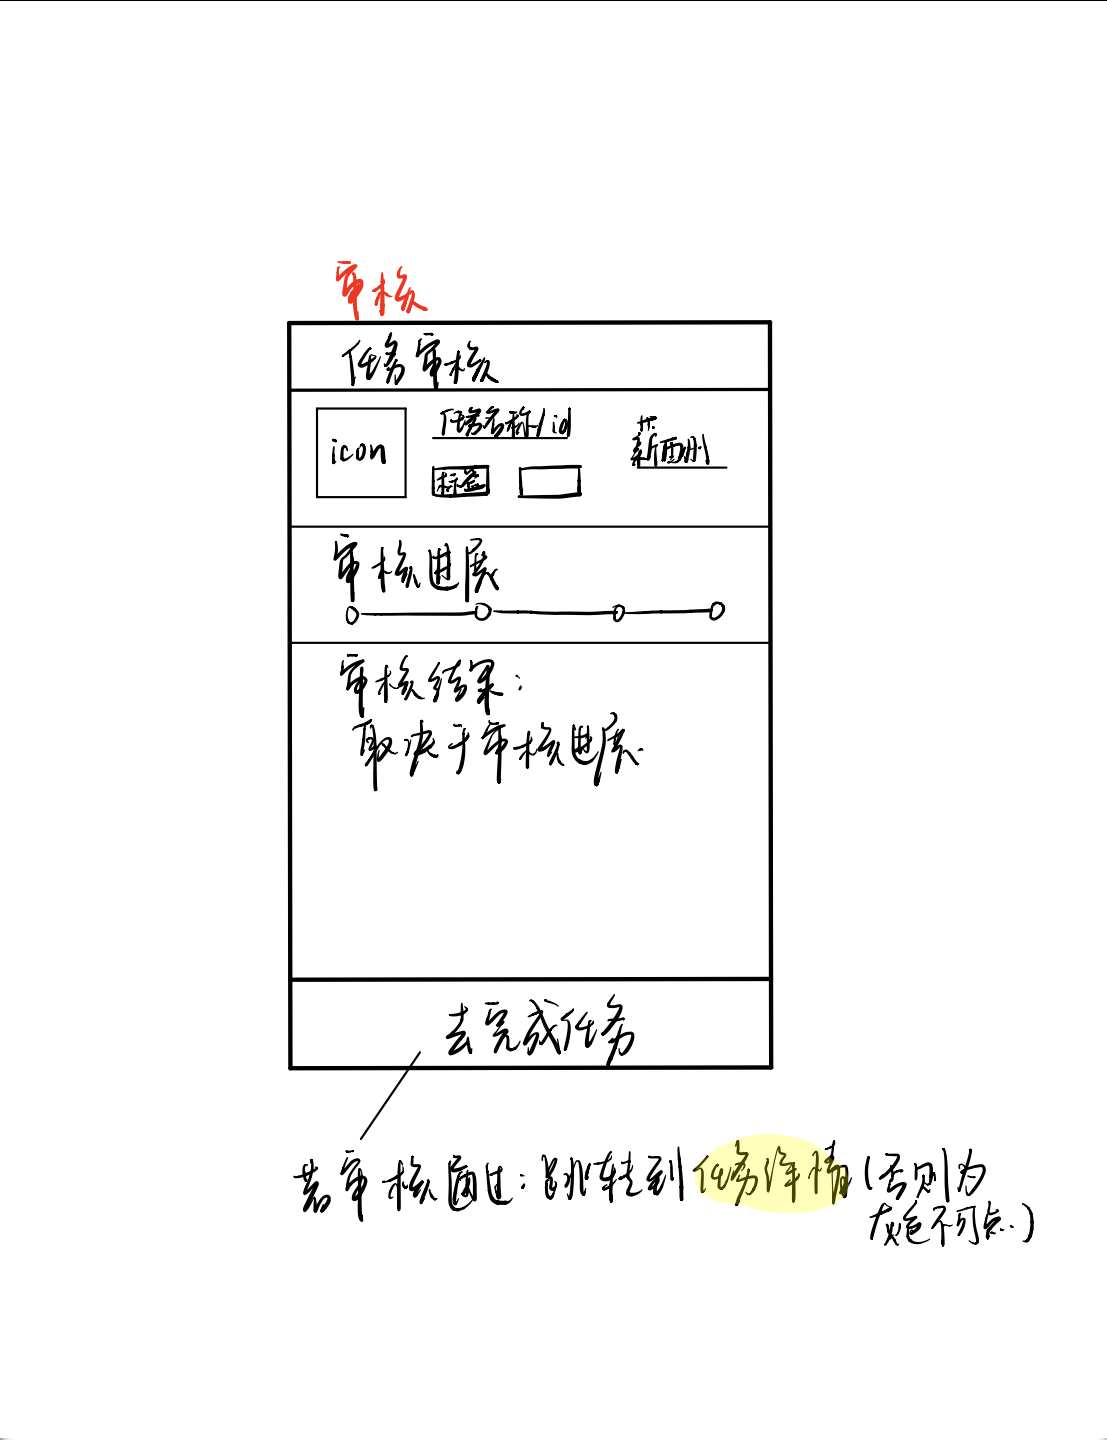 审核
任务审核
icon
任务名称/id
标签
审核进展
审核结果:
取决于审核进展.
去完成任务
若审核通过:跳转到任务详情(否则为
灰色不可点.)